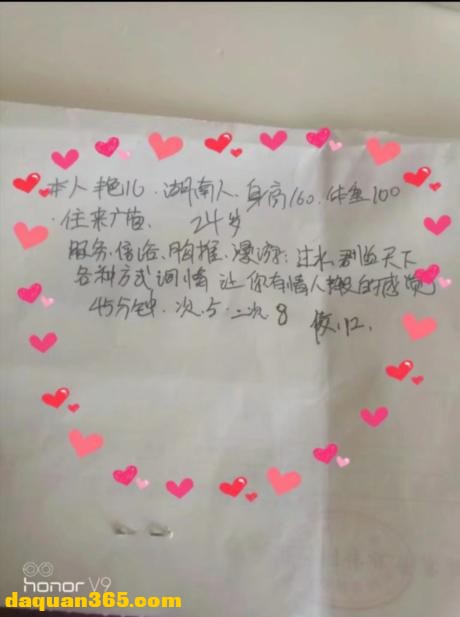 本人艳16.湖南人.身高160.体重100
.住来广苗. 24岁
服务.信浴.胸推.漫游:过水.君监天下
各种方式调情 让你有情人般的感觉
45分钟.次.5.二次8
夜.12.
honor V9
daquan365.com